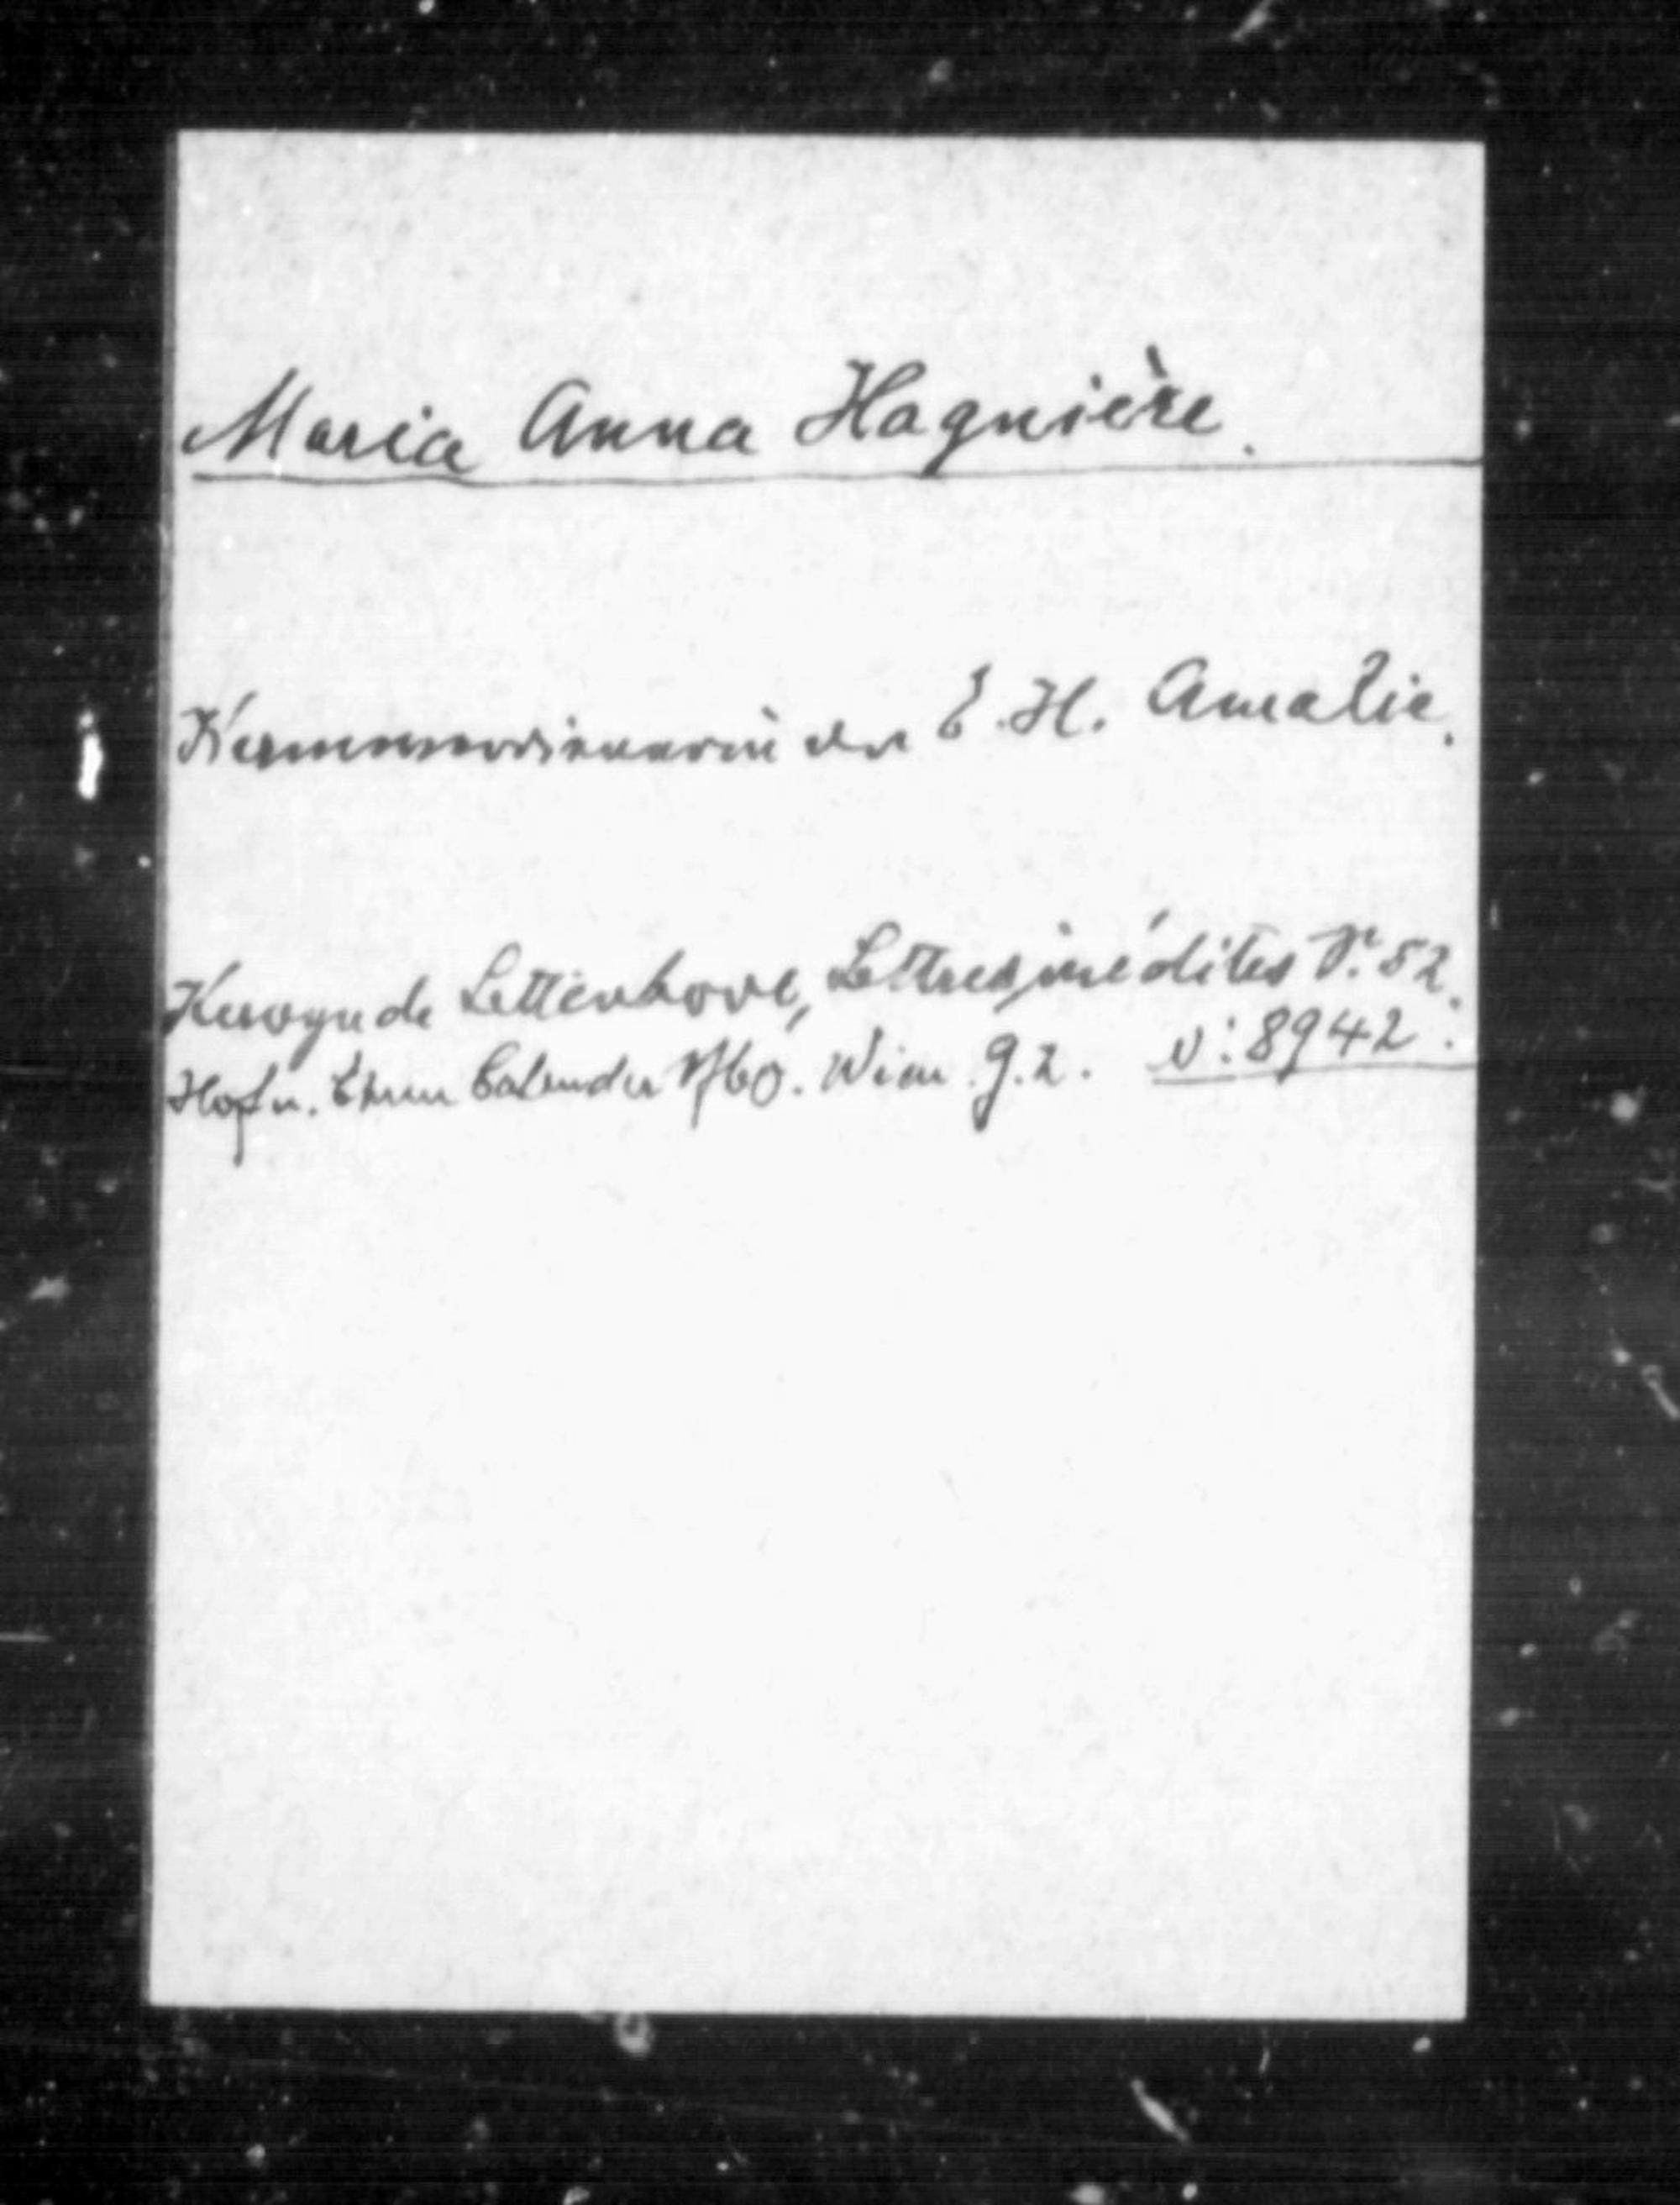 Maria Anna Hagnière.
Kammerdienerin der E. H. Amalie.
Kervyn de Lettenhove, Lettres inédites P. 52.
Hof u. Ehren Calender 1760. Wien. g. 2. v: 8942: